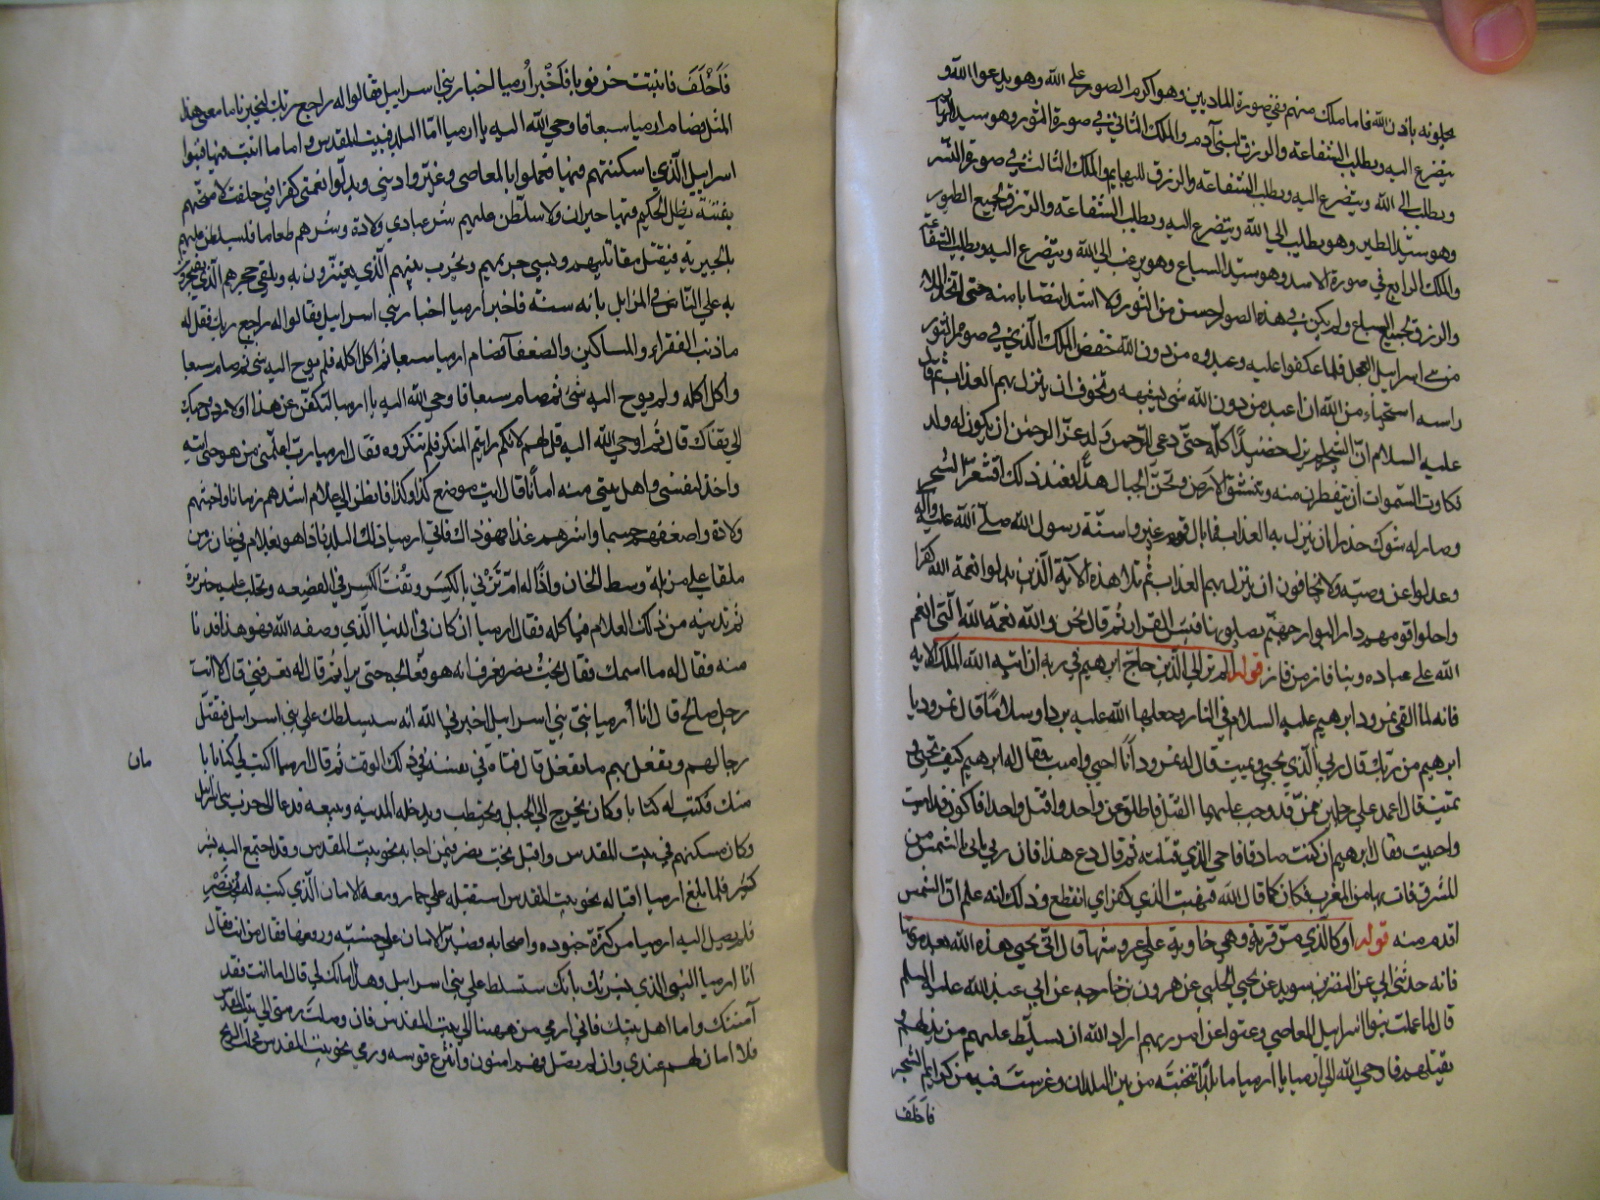 يحملونه باذن الله فاما ملك منهم ففي صورة الادميين وهو اكرم الصور على الله وهو يدعوا الله و
يتضرع اليه ويطلب الشفاعة والرزق لبني آدم والملك الثاني في صورة الثور وهو سيد البهائم
ويطلب الى الله ويتضرع اليه ويطلب الشفاعة والرزق للبهايم والملك الثالث في صورة النسر
وهو سيد الطير وهو يطلب الي الله ويتضرع اليه ويطلب الشفاعة والرزق لجميع الطيور
والملك الرابع في صورة الاسد وهو سيد السباع وهو يرغب الي الله ويتضرع اليه ويطلب الشفاعة
والرزق لجميع السباع ولم يكن في هذه الصور احسن من الثور ولا اشد انتصابا منه حتى اتخذ الملا
من بني اسرائيل العجل فلما عكفوا عليه وعبدوه من دون الله خفض الملك الذي في صورة الثور
راسه استحياء من الله ان عبد من دون الله شي يشبهه وتخوف ان ينزل بهم العذاب ثم قال
عليه السلام ان الشجر لم يزل حضيدا كله حتى دعي للرحمن ولد عز الرحمن ان يكون له ولد
فكادت السموات ان يتفطرن منه وتنشق الارض وتخر الجبال هدا فعند ذلك اقشعر الشجر
وصار له شوك حذرا ان ينزل به العذاب فما بال قوم غيروا سنة رسول الله صلى الله عليه وآله
وعدلوا عن وصيه ولا يخافون ان ينزل بهم العذاب ثم تلا هذه الآية الذين بدلوا نعمة الله كفرا
واحلوا قومهم دار البوار جهنم يصلونها فبئس القرار ثم قال نحن والله نعمة الله التي انعم
الله على عباده وبنا فاز من فاز قوله الم تر الي الذين حاج ابرهيم في ربه ان اتيه الله الملك الاية
فانه لما القى نمرود ابرهيم عليه السلام في النار وجعلها الله عليه بردا وسلاما قال نمرود يا
ابرهيم من ربك قال ربي الذي يحيي ويميت قال له نمرود انا احيي واميت فقال له ابرهيم كيف تحيي و
تميت قال اعمد علي رجلين ممن قد وجب عليهما القتل فاطلق عن واحد واقتل واحدا فاكون قد امت
واحييت فقال ابرهيم ان كنت صادقا فاحي الذي قتلته ثم قال دع هذا فان ربي ياتي بالشمس من
المشرق فات بها من المغرب فكان كما قال الله فبهت الذي كفر اي انقطع وذلك انه علم ان الشمس
اقدم منه قوله او كالذي مر على قرية وهي خاوية علي عروشها قال اني يحيي هذه الله بعد موتها
فانه حدثني ابي عن النضر بن سويد عن يحيى الحلبي عن هرون بن خارجه عن ابي عبد الله عليه السلم
قال لما عملت بنوا اسرايل المعاصي وعتوا عن امر ربهم اراد الله ان يسلط عليهم من يذلهم و
يقتلهم فاوحي الله الي ارميا يا ارميا ما بلد انتخبته من بين البلدان وغرست فيه من كرايم الشجر
فاخلف
فَاَخْلَفَ فانبتت خرنوبا فَاَخْبر اُرميا احبار بني اسرائيل فقالوا له راجع ربك ليخبرنا ما معنى هذا
المثل فصام ارميا سبعا فاوحي الله اليه يا ارميا امّا البلد فبيت المقدس واما ما انبت فيها فبنوا
اسرايل الذي اسكنتهم فيها فعملوا بالمعاصي وغيّروا ديني وبدلوا نعمتي كفرا فبي حلفت لامتحنهم
بفتنة يظل الحكيم فيها حيران ولاسلطن عليهم شر عبادي ولادة وشرهم طعاما فليسلطن عليهم
بالجبرية فيقتل مقاتليهم ويسبي حريمهم ويخرب بيتهم الذي يعتزون به ويلقي حجرهم الذي يفتخرون
به علي الناس في المزابل مائة سنة فاخبر ارميا احبار بني اسرايل فقالوا له راجع ربك فقل له
ما ذنب الفقراء والمساكين والضعفا فصام ارميا سبعا ثم اكل اكله فلم يوح اليه شي ثم صام سبعا
واكل اكله ولم يوح اليه شئ ثم صام سبعا فاوحي الله اليه يا ارميا لتكفن عن هذا او لاردن وجهك
الي قفاك قال ثم اوحي الله اليه قل لهم لانكم رايتم المنكر فلم تنكروه فقال ارميا رب اعلمني من هو حتى اتيه
واخذ لنفسي واهل بيتي منه امانا قال ايت موضع كذا وكذا فانظر الي غلام اشدهم زمانا واخبثهم
ولادة واضعفهم جسما واشرهم غذا فهو ذاك فاتي ارميا ذلك البلد فاذا هو بغلام في خان زمن
ملقا علي مزبلة وسط الخان واذا له ام تزبي بالكسر وتفت الكسر في القصعه وتحلب عليه خنزيرة
ثم تدنيه من ذلك الغلام فياكله فقال ارميا ان كان في الدنيا الذي وصفه الله فهو هذا فدنا
منه فقال له ما اسمك فقال بخت نصر فعرف انه هو فعالجه حتى برا ثم قال له تعرفني قال لا انت
رجل صالح قال انا ارميا نبي بني اسرايل اخبرني الله انه سيسلطك علي بني اسرايل فتقتل
رجالهم وتفعل بهم ما تفعل قال فتاه في نفسه في ذلك الوقت ثم قال ارميا اكتب لي كتابا با
مان
منك فكتب له كتابا وكان يخرج الي الجبل ويحتطب ويدخله المدينه ويبيعه فدعا الي حرب بني اسرايل
وكان مسكنهم في بيت المقدس واقبل بخت نصر فيمن اجابه نحو بيت المقدس وقد اجتمع اليه بشر
كثير فلما بلغ ارميا اقباله نحو بيت المقدس استقبله علي حمار ومعه الامان الذي كتبه له بخت نصر
فلم يصل اليه ارميا من كثرة جنوده واصحابه فصير الامان علي خشبه ورفعها فقال من انت فقال
انا ارميا النبي الذي بشرتك بانك ستسلط علي بني اسرايل وهذا امانك لي قال اما انت فقد
آمنتك واما اهل بيتك فاني ارمي من هيهنا الي بيت المقدس فان وصلت رميتي الي بيت المقدس
فلا امان لهم عندي وان لم يصل فهم امنون وانتزع قوسه ورمي نحو بيت المقدس فحملت الريح